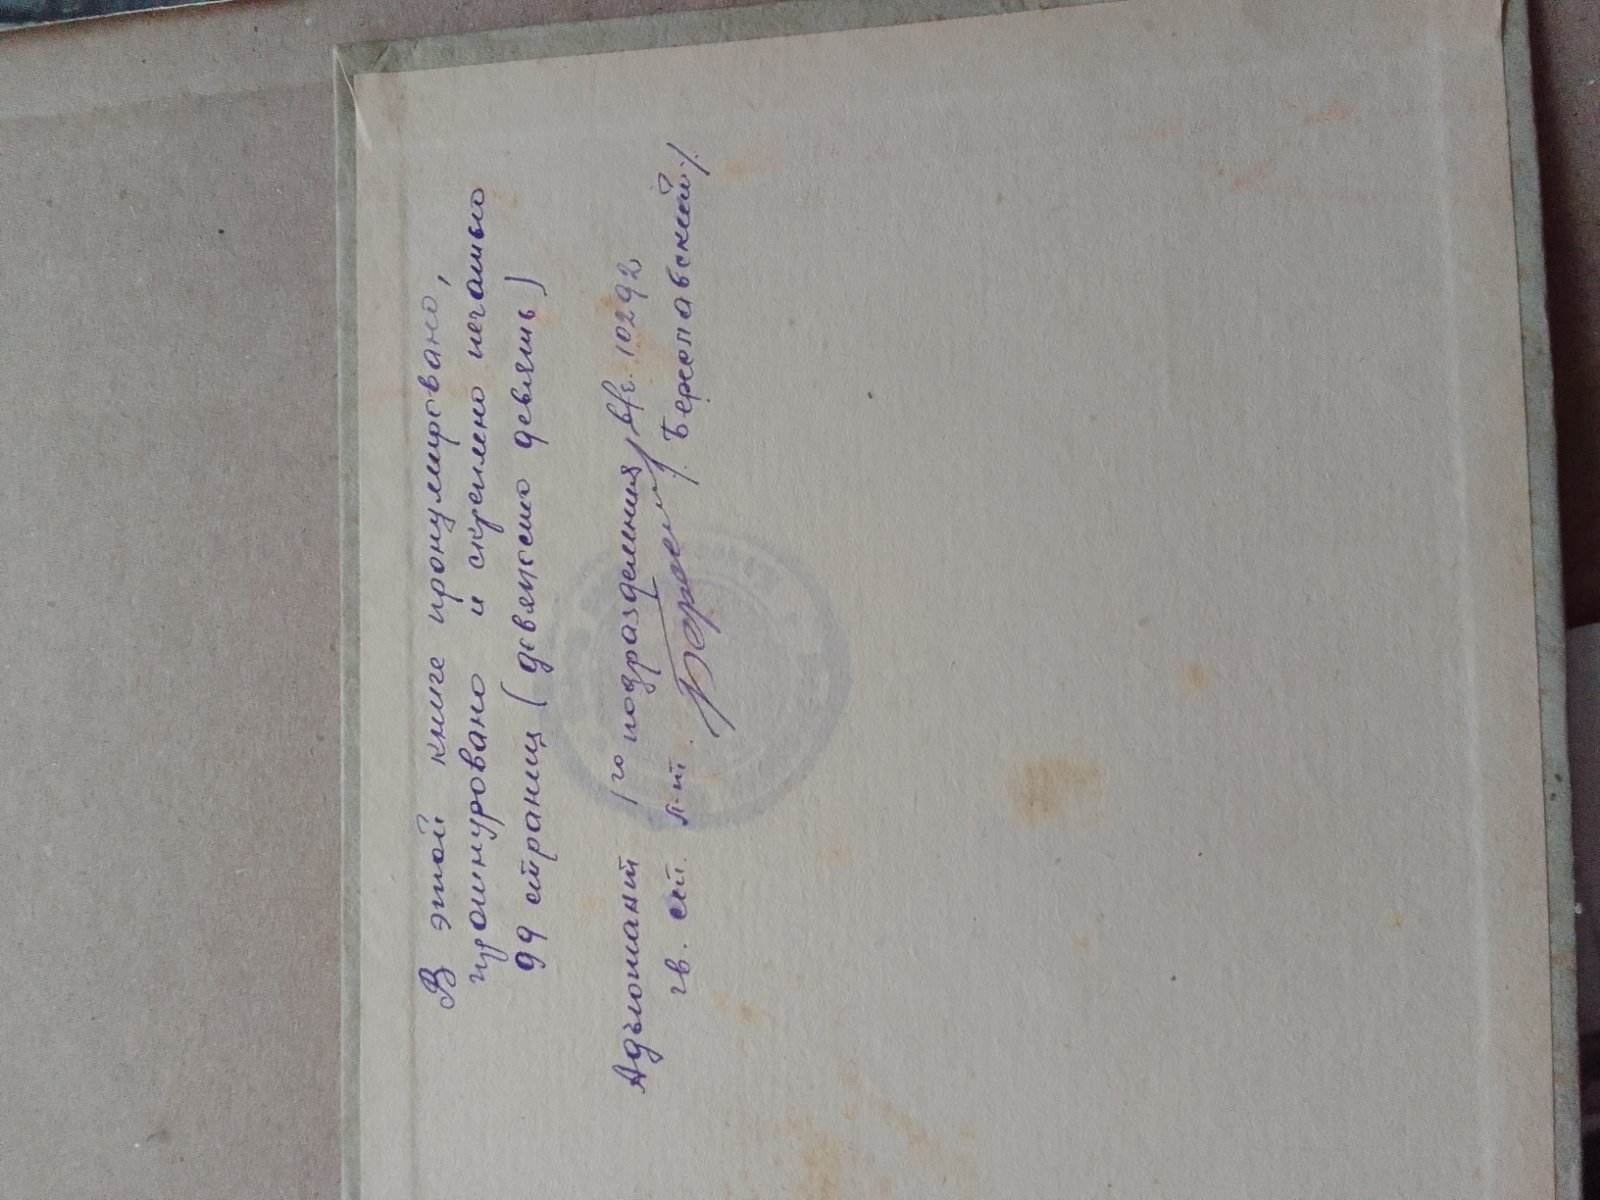 В этой книге пронумеровано,
прошнуровано и скреплено печатью
99 страниц (девяносто девять)
Адъютант 1го подразделения в/ч. 10292
гв. ст. л-т. /. Бержавский /.